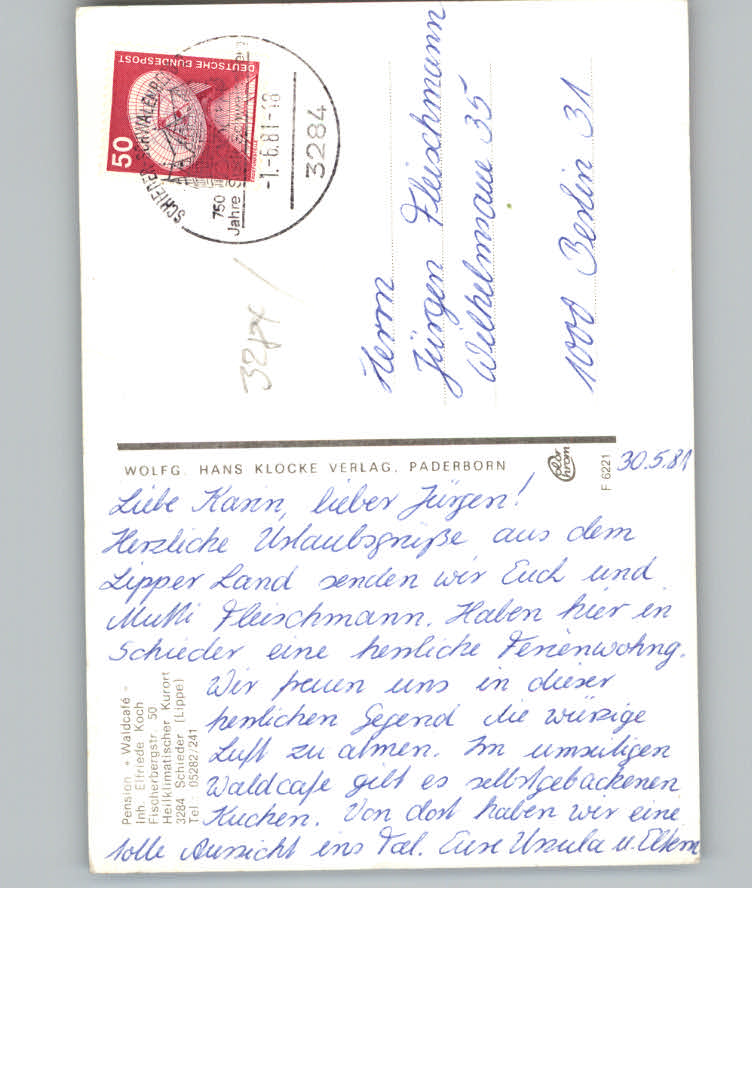 DEUTSCHE BUNDESPOST
50
SCHIEDER-SCHWALENBERG
750
Jahre
-1.-6.81-18
3284
Herrn
Jürgen Fleischmann
Wilhelmsaue 35
1000 Berlin 31
WOLFG. HANS KLOCKE VERLAG, PADERBORN
color chrom
F 6221
30.5.81
Liebe Karin, lieber Jürgen!
Herzliche Urlaubsgrüße aus dem
Lipper Land senden wir Euch und
Mutti Fleischmann. Haben hier in
Schieder eine herrliche Ferienwohng.
Wir freuen uns in dieser
herrlichen Gegend die würzige
Luft zu atmen. Im umseitigen
Waldcafe gibt es selbstgebackenen
Kuchen. Von dort haben wir eine
tolle Aussicht ins Tal. Eure Ursula u. Eltern
Pension + Waldcafé -
Inh. Elfriede Koch
Fischerbergstr 50
Heilklimatischer Kurort
3284 Schieder (Lippe)
Tel. 05282/241